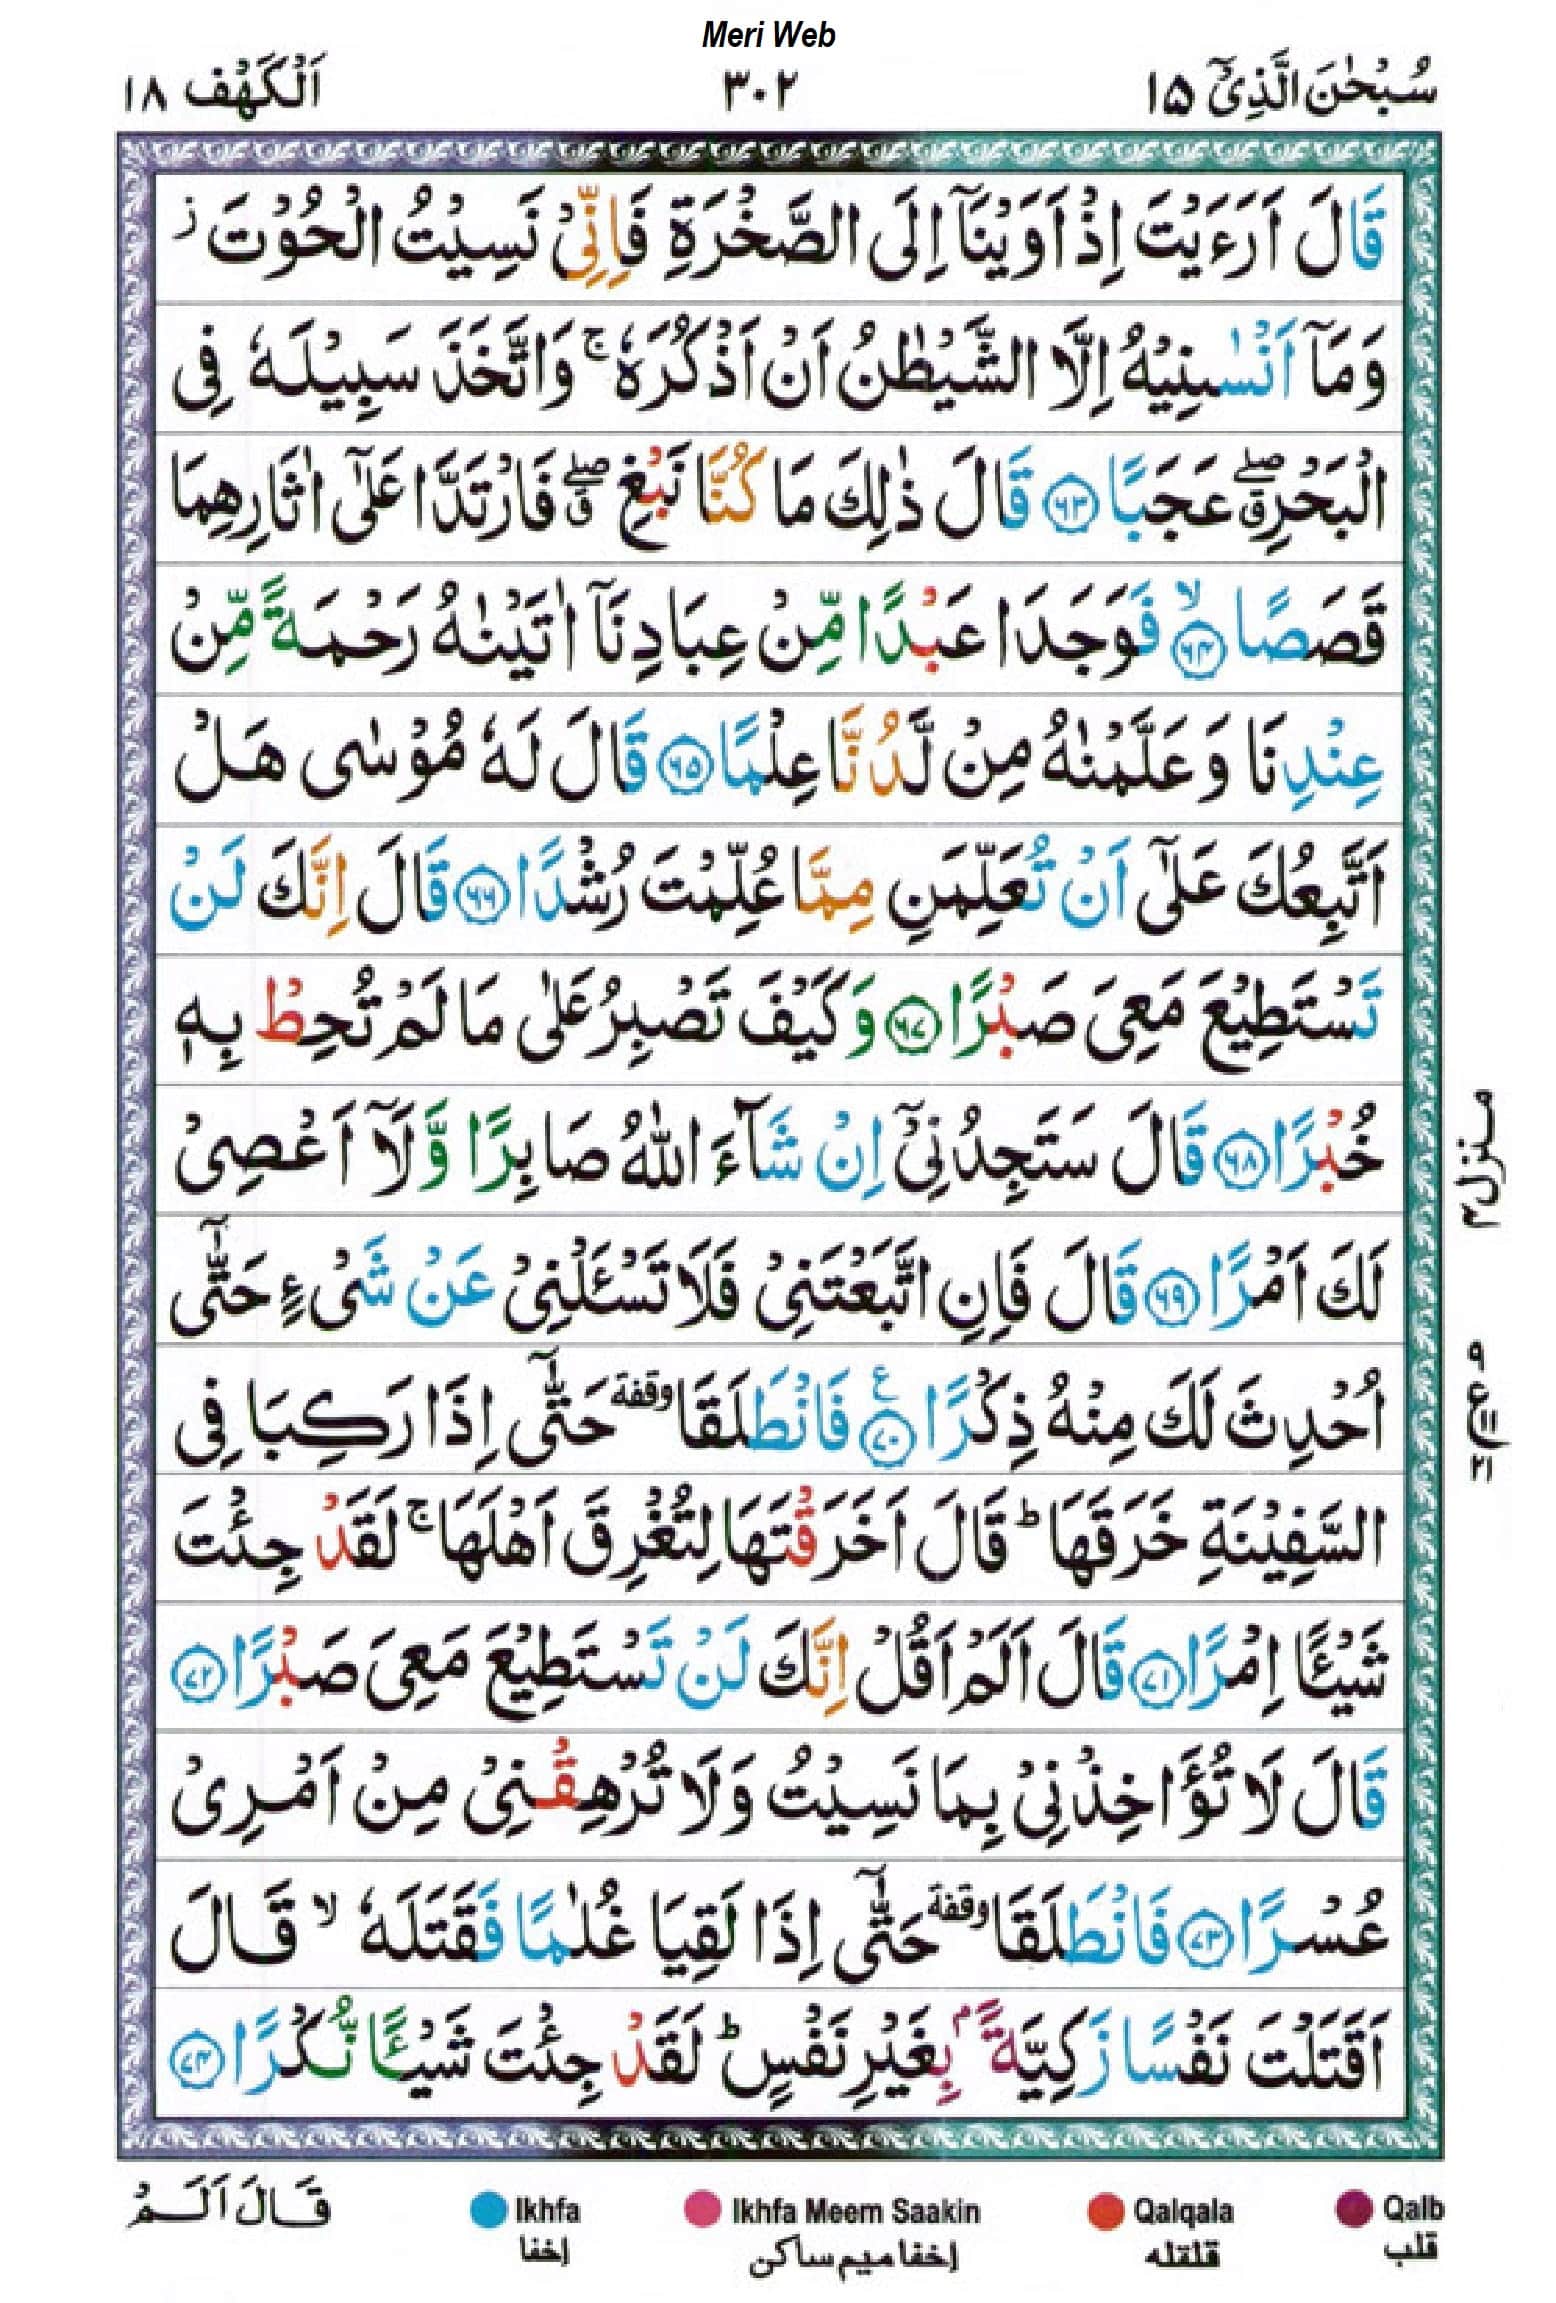 Meri Web
سُبْحٰنَ الَّذِیْۤ ١٥
٣٠٢
اَلْكَهْف ١٨
قَالَ اَرَءَیْتَ اِذْ اَوَیْنَاۤ اِلَى الصَّخْرَةِ فَاِنِّیْ نَسِیْتُ الْحُوْتَ ز
وَمَاۤ اَنْسٰىنِیْهُ اِلَّا الشَّیْطٰنُ اَنْ اَذْكُرَهٗ ج وَاتَّخَذَ سَبِیْلَهٗ فِی
الْبَحْرِ ق صلے عَجَبًا ﴿٦٣﴾ قَالَ ذٰلِكَ مَا كُنَّا نَبْغِ ق صلے فَارْتَدَّا عَلٰۤى اٰثَارِهِمَا
قَصَصًا ﴿٦٤﴾ لا فَوَجَدَا عَبْدًا مِّنْ عِبَادِنَاۤ اٰتَیْنٰهُ رَحْمَةً مِّنْ
عِنْدِنَا وَعَلَّمْنٰهُ مِنْ لَّدُنَّا عِلْمًا ﴿٦٥﴾ قَالَ لَهٗ مُوْسٰى هَلْ
اَتَّبِعُكَ عَلٰۤى اَنْ تُعَلِّمَنِ مِمَّا عُلِّمْتَ رُشْدًا ﴿٦٦﴾ قَالَ اِنَّكَ لَنْ
تَسْتَطِیْعَ مَعِیَ صَبْرًا ﴿٦٧﴾ وَكَیْفَ تَصْبِرُ عَلٰى مَا لَمْ تُحِطْ بِهٖ
خُبْرًا ﴿٦٨﴾ قَالَ سَتَجِدُنِیْۤ اِنْ شَآءَ اللّٰهُ صَابِرًا وَّلَاۤ اَعْصِیْ
لَكَ اَمْرًا ﴿٦٩﴾ قَالَ فَاِنِ اتَّبَعْتَنِیْ فَلَا تَسْـَٔلْنِیْ عَنْ شَیْءٍ حَتّٰۤى
اُحْدِثَ لَكَ مِنْهُ ذِكْرًا ﴿٧٠﴾ ع فَانْطَلَقَا وقفة حَتّٰۤى اِذَا رَكِبَا فِی
السَّفِیْنَةِ خَرَقَهَا ط قَالَ اَخَرَقْتَهَا لِتُغْرِقَ اَهْلَهَا ج لَقَدْ جِئْتَ
شَیْـًٔا اِمْرًا ﴿٧١﴾ قَالَ اَلَمْ اَقُلْ اِنَّكَ لَنْ تَسْتَطِیْعَ مَعِیَ صَبْرًا ﴿٧٢﴾
قَالَ لَا تُؤَاخِذْنِیْ بِمَا نَسِیْتُ وَلَا تُرْهِقْنِیْ مِنْ اَمْرِیْ
عُسْرًا ﴿٧٣﴾ فَانْطَلَقَا وقفة حَتّٰۤى اِذَا لَقِیَا غُلٰمًا فَقَتَلَهٗ لا قَالَ
اَقَتَلْتَ نَفْسًا زَكِیَّةًۢ بِغَیْرِ نَفْسٍ ط لَقَدْ جِئْتَ شَیْـًٔا نُّكْرًا ﴿٧٤﴾
منزل ٤
٩
ع
٢١
قَالَ اَلَمْ
Ikhfa
إخفا
Ikhfa Meem Saakin
إخفا ميم ساكن
Qalqala
قلقله
Qalb
قلب